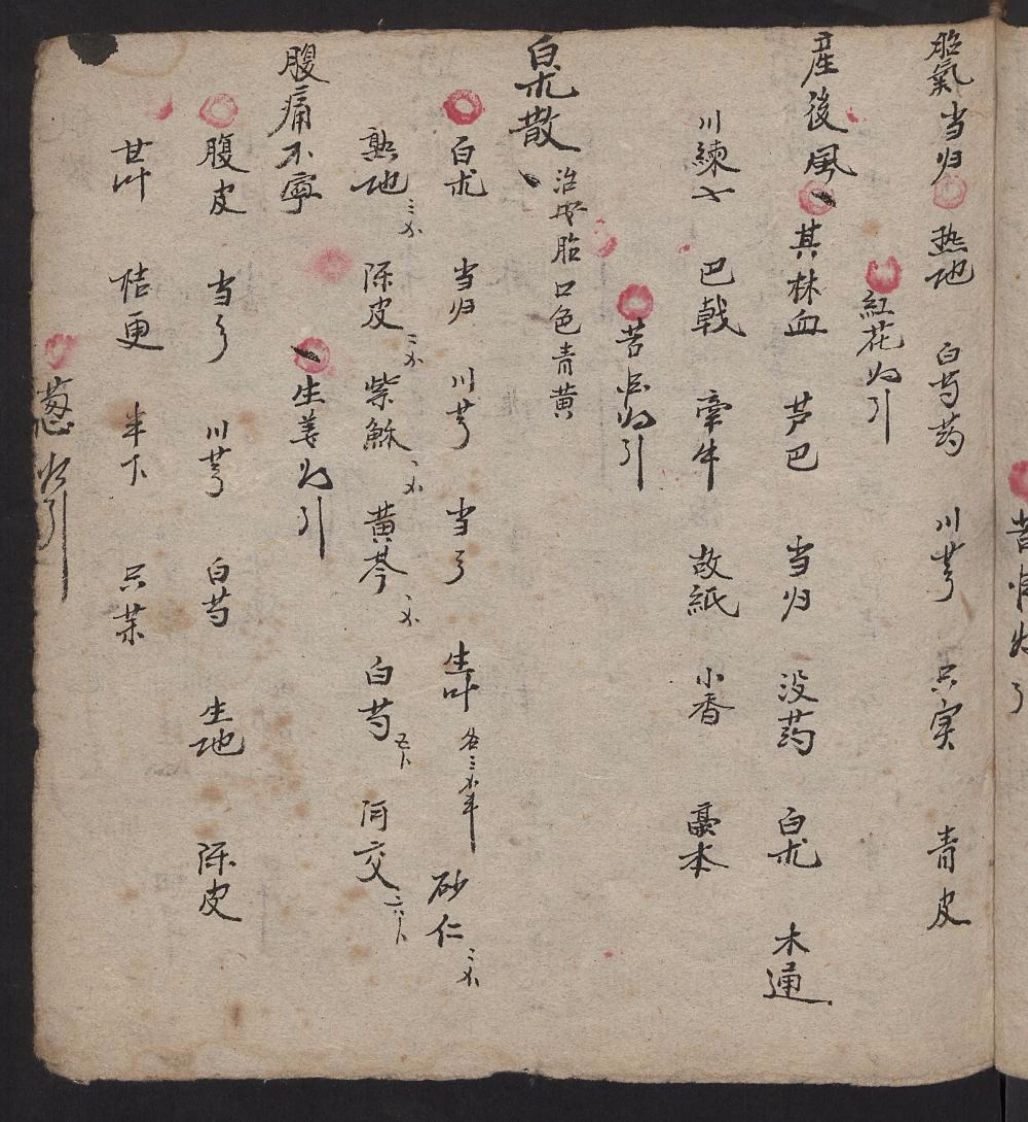 胎氣 当归 熱地 白芍药 川芎 只实 青皮
紅花为引
産後風 其林血 芦巴 当归 没药 白朮 木通
川練 巴戟 牽牛 故紙 小香 藁本
苦 为引
白朮散 治安胎口色青黄
白朮 当归 川芎 当 生 各三 半 砂仁 二
熟地 三 陈皮 二 紫穌 二 黄芩 二 白芍 五卜 阿交 六卜
腹痛不寧 生姜为引
腹皮 当 川芎 白芍 生地 陈皮
甘叶 桔更 半下 只
葱心为引
为引